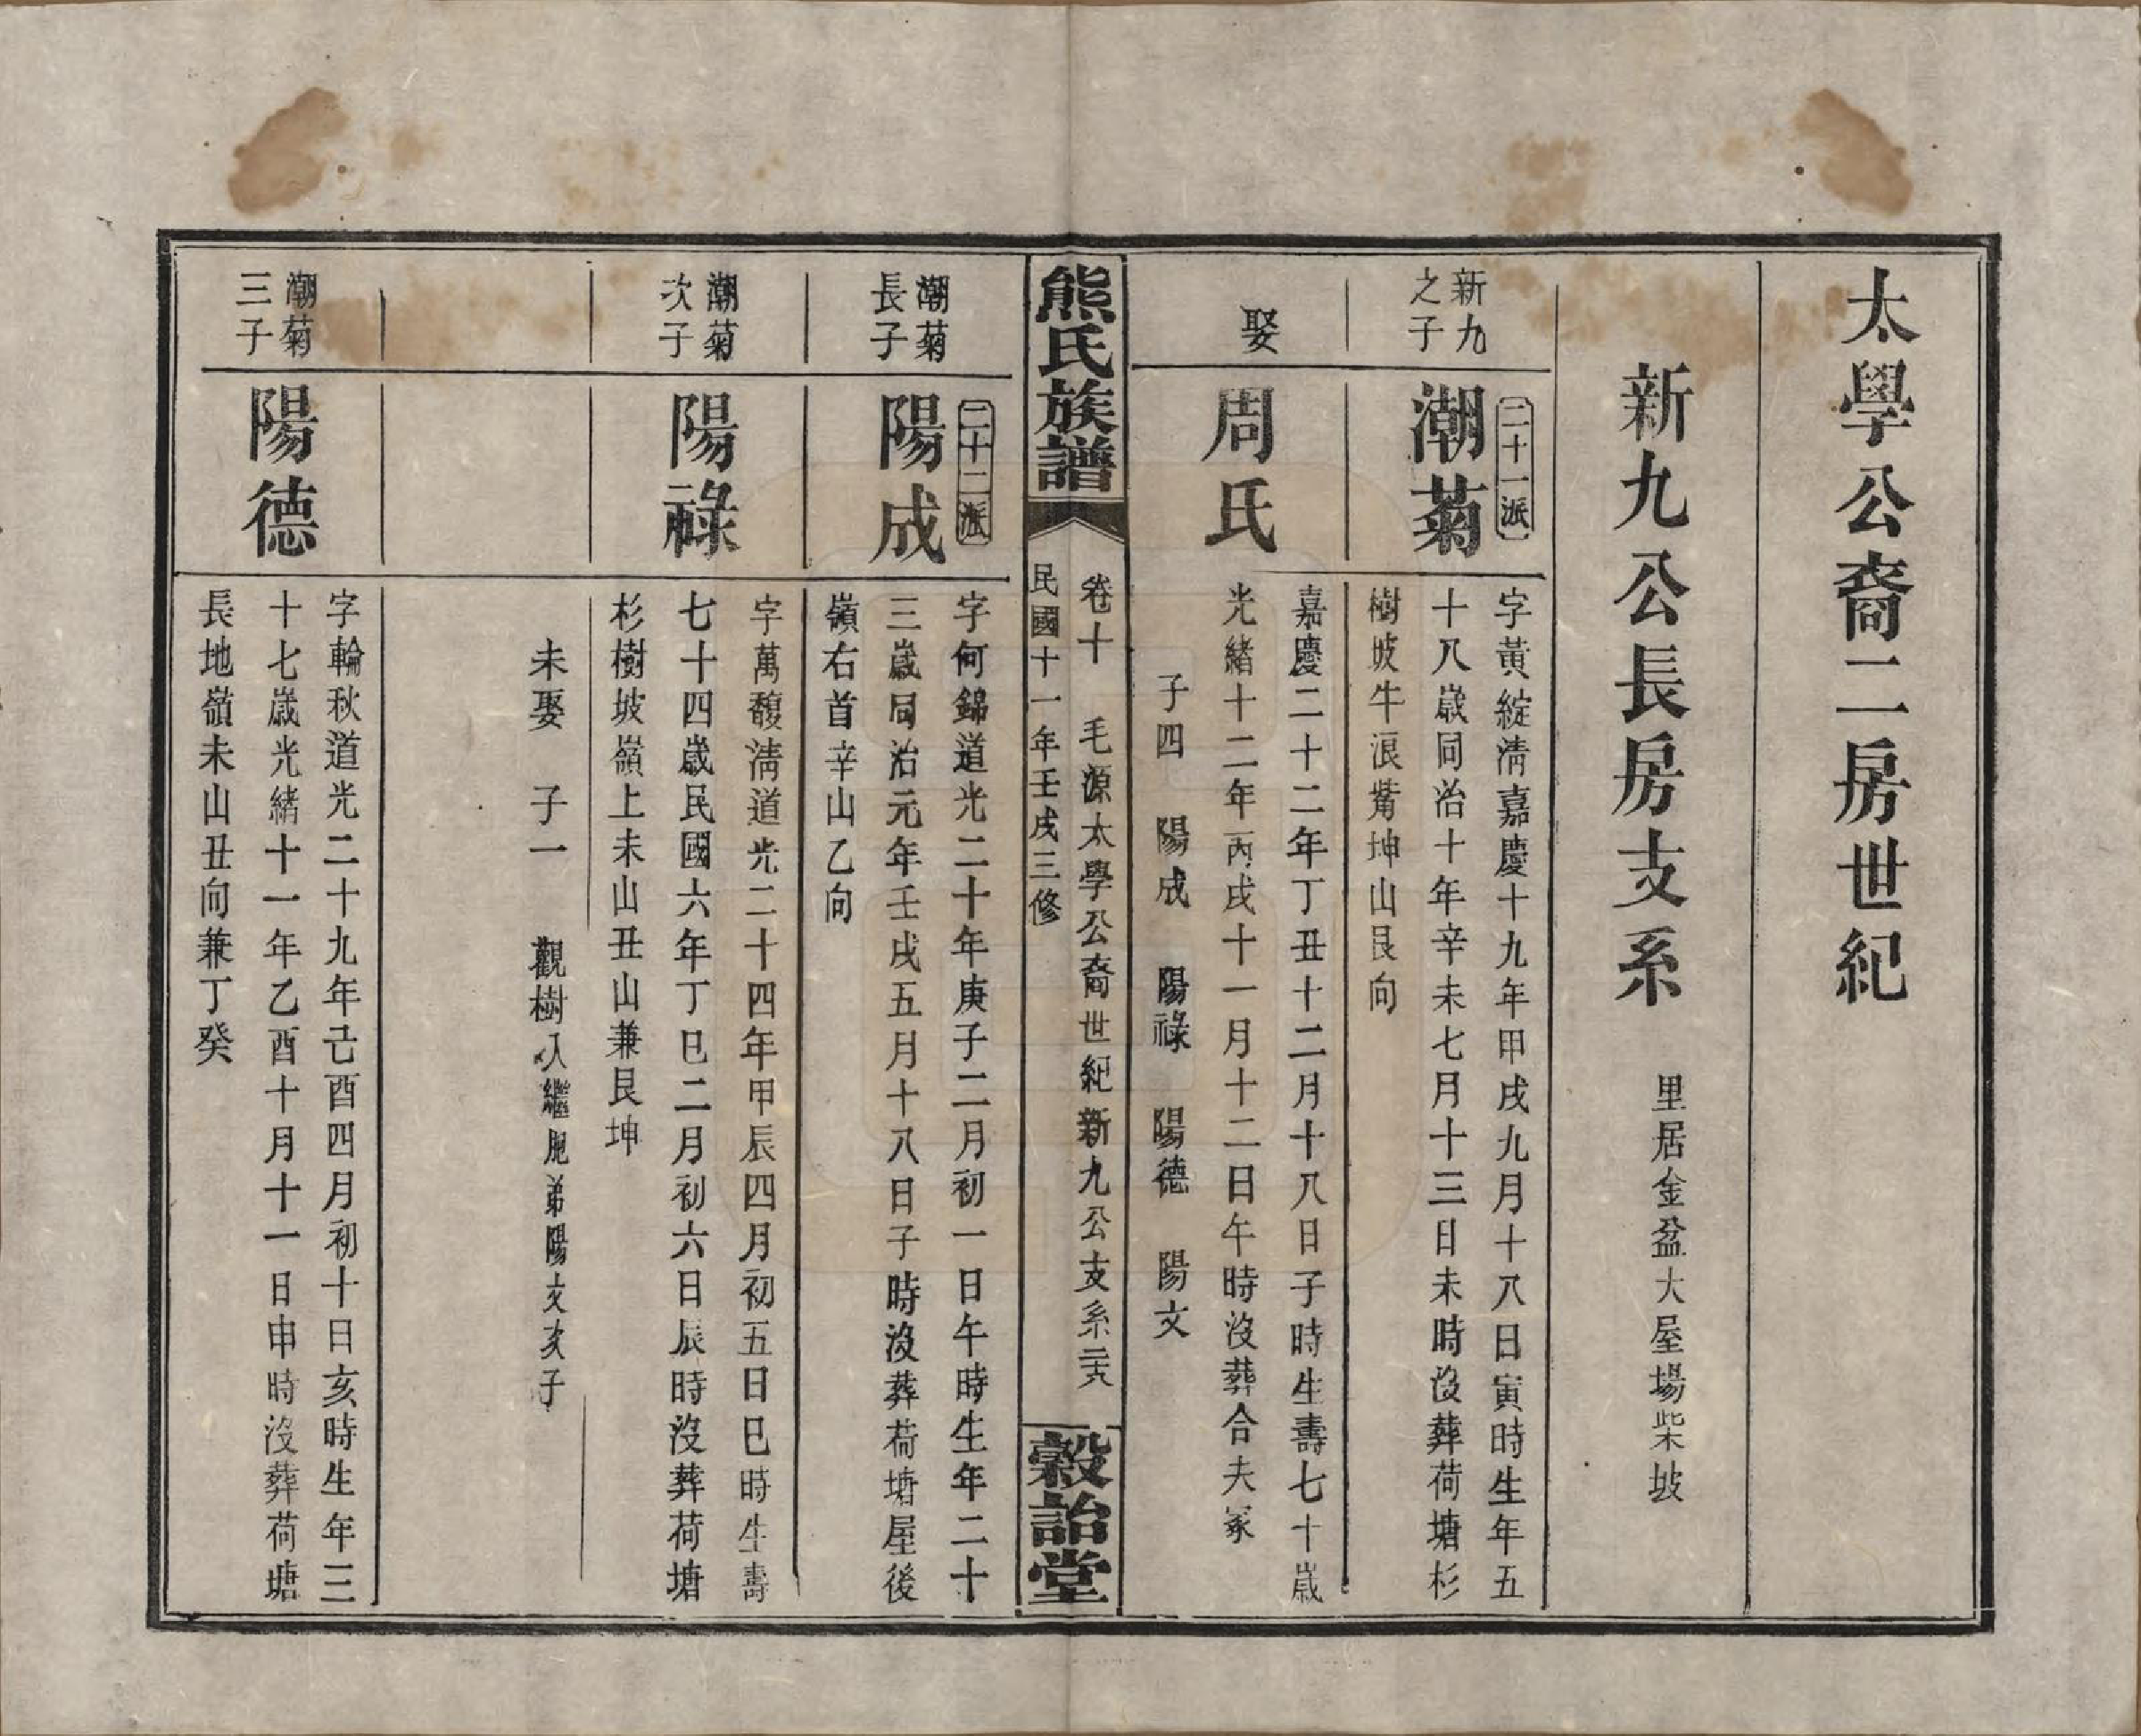 太學公裔二房世紀
新九公長房支系
里居金盆大屋場柴坡
新九之子
潮菊
二十一派
字黃綻清嘉慶十九年甲戌九月十八日寅時生年五
十八歲同治十年辛未七月十三日未時沒葬荷塘杉
樹坡牛浪觜坤山艮向
娶
周氏
嘉慶二十二年丁丑十二月十八日子時生壽七十歲
光緒十二年丙戌十一月十二日午時沒葬合夫冢
子四 陽成 陽祿 陽德 陽文
熊氏族譜
卷十 毛源太學公裔世紀新九公支系
民國十一年壬戌三修
穀詒堂
潮菊長子
二十二派
陽成
字何錦道光二十年庚子二月初一日午時生年二十
三歲同治元年壬戌五月十八日子時沒葬荷塘屋後
嶺右首辛山乙向
潮菊次子
陽祿
字萬馥清道光二十四年甲辰四月初五日巳時生壽
七十四歲民國六年丁巳二月初六日辰時沒葬荷塘
杉樹坡嶺上未山丑山兼艮坤
未娶 子一 觀樹入繼胞弟陽文次子
潮菊三子
陽德
字輪秋道光二十九年己酉四月初十日亥時生年三
十七歲光緒十一年乙酉十月十一日申時沒葬荷塘
長地嶺未山丑向兼丁癸